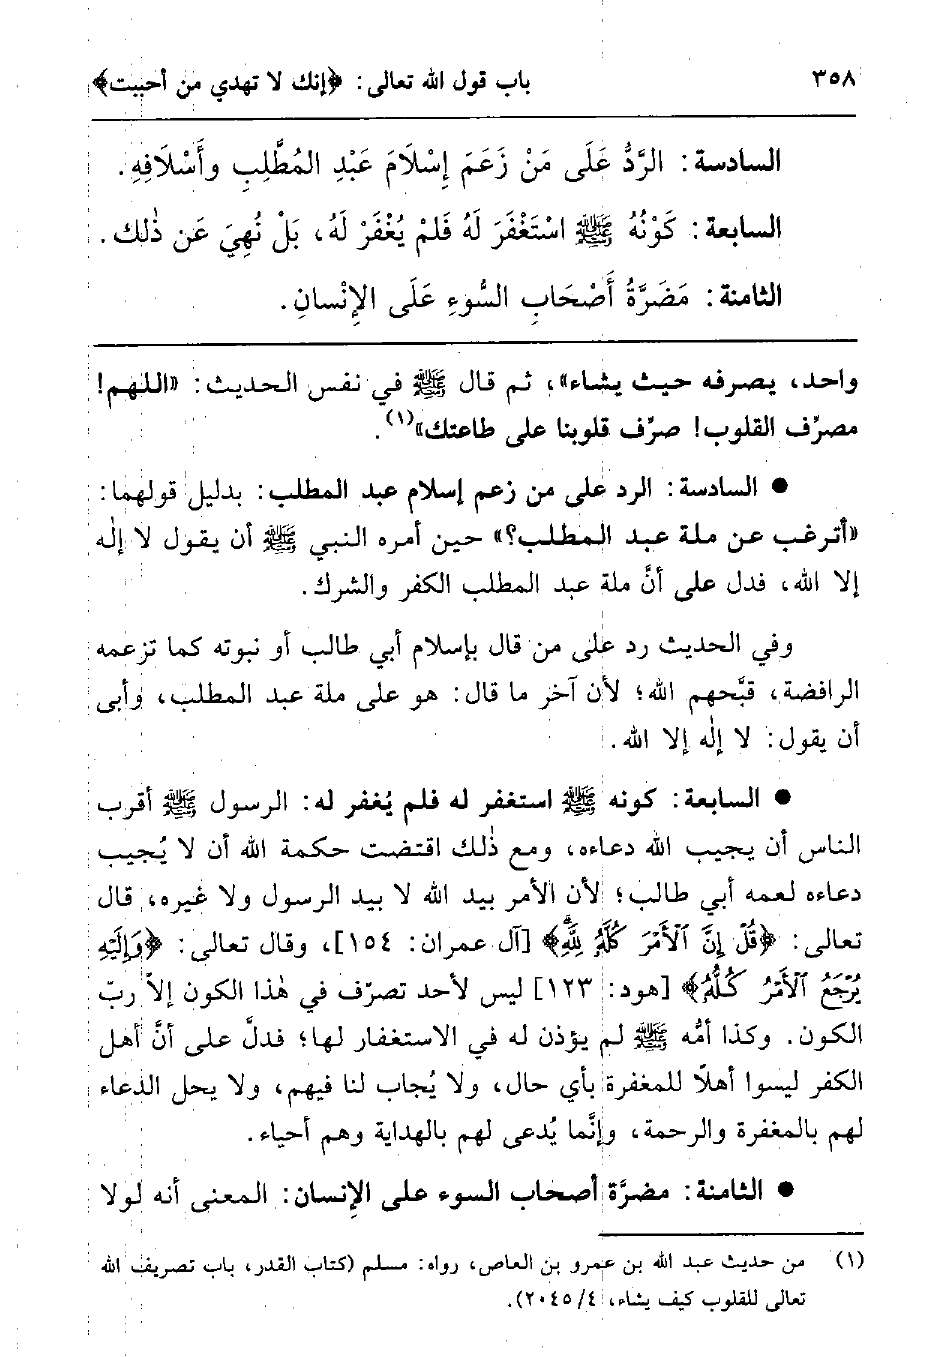 ٣٥٨ باب قول الله تعالى: ﴿إنك لا تهدي من أحببت﴾
السادسة: الرَّدُّ عَلَى مَنْ زَعَمَ إِسْلَامَ عَبْدِ المُطَّلِبِ وأَسْلَافِهِ.
السابعة: كَوْنُهُ ﷺ اسْتَغْفَرَ لَهُ فَلمْ يُغْفَرْ لَهُ، بَلْ نُهِيَ عَن ذٰلك.
الثامنة: مَضَرَّةُ أَصْحَابِ السُّوءِ عَلَى الإِنْسانِ.
واحد، يصرفه حيث يشاء»، ثم قال ﷺ في نفس الحديث: «اللهم!
مصرِّف القلوب! صرِّف قلوبنا على طاعتك»(١).
● السادسة: الرد على من زعم إسلام عبد المطلب: بدليل قولهما:
«أترغب عن ملة عبد المطلب؟» حين أمره النبي ﷺ أن يقول لا إلٰه
إلا الله، فدل على أنَّ ملة عبد المطلب الكفر والشرك.
وفي الحديث رد على من قال بإسلام أبي طالب أو نبوته كما تزعمه
الرافضة، قبَّحهم الله؛ لأن آخر ما قال: هو على ملة عبد المطلب، وأبى
أن يقول: لا إلٰه إلا الله.
● السابعة: كونه ﷺ استغفر له فلم يُغفر له: الرسول ﷺ أقرب
الناس أن يجيب الله دعاءه، ومع ذٰلك اقتضت حكمة الله أن لا يُجيب
دعاءه لعمه أبي طالب؛ لأن الأمر بيد الله لا بيد الرسول ولا غيره، قال
تعالى: ﴿قُلْ إِنَّ ٱلْأَمْرَ كُلَّهُۥ لِلَّهِ﴾ [آل عمران: ١٥٤]، وقال تعالى: ﴿وَإِلَيْهِ
يُرْجَعُ ٱلْأَمْرُ كُلُّهُۥ﴾ [هود: ١٢٣] ليس لأحد تصرّف في هٰذا الكون إلاّ ربّ
الكون. وكذا أمُّه ﷺ لم يؤذن له في الاستغفار لها؛ فدلَّ على أنَّ أهل
الكفر ليسوا أهلاً للمغفرة بأي حال، ولا يُجاب لنا فيهم، ولا يحل الدعاء
لهم بالمغفرة والرحمة، وإنَّما يُدعى لهم بالهداية وهم أحياء.
● الثامنة: مضرَّة أصحاب السوء على الإنسان: المعنى أنه لولا
(١) من حديث عبد الله بن عمرو بن العاص، رواه: مسلم (كتاب القدر، باب تصريف الله
تعالى للقلوب كيف يشاء، ٤/ ٢٠٤٥).